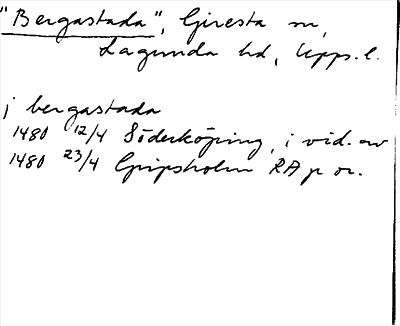 "Bergastada", Giresta sn,
Lagunda hd, Upps. l.
j bergastada
1480 12/4 Söderköping, i vid. av
1480 23/4 Gripsholm RA p or.